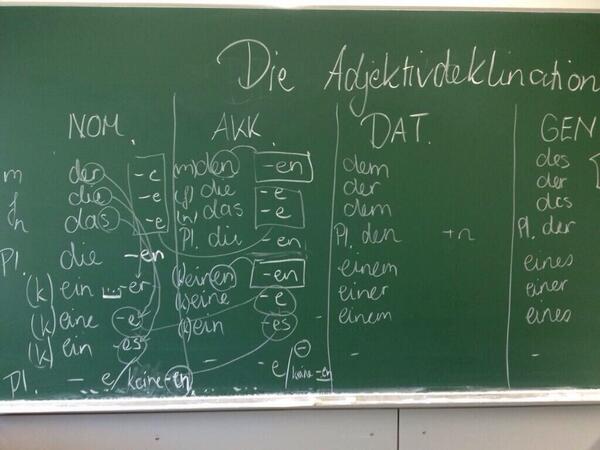 Die Adjektivdeklination
NOM. AKK. DAT. GEN
m der -e m) den -en dem des
f die -e (f) die -e der der
n das -e (n) das -e dem des
Pl. die -en Pl. die -en Pl. den +n Pl. der
(k) ein -er (k) einen -en einem eines
(k) eine -e (k) eine -e einer einer
(k) ein -es (k) ein -es einem eines
Pl. - e/keine -en - -e/keine -en - -